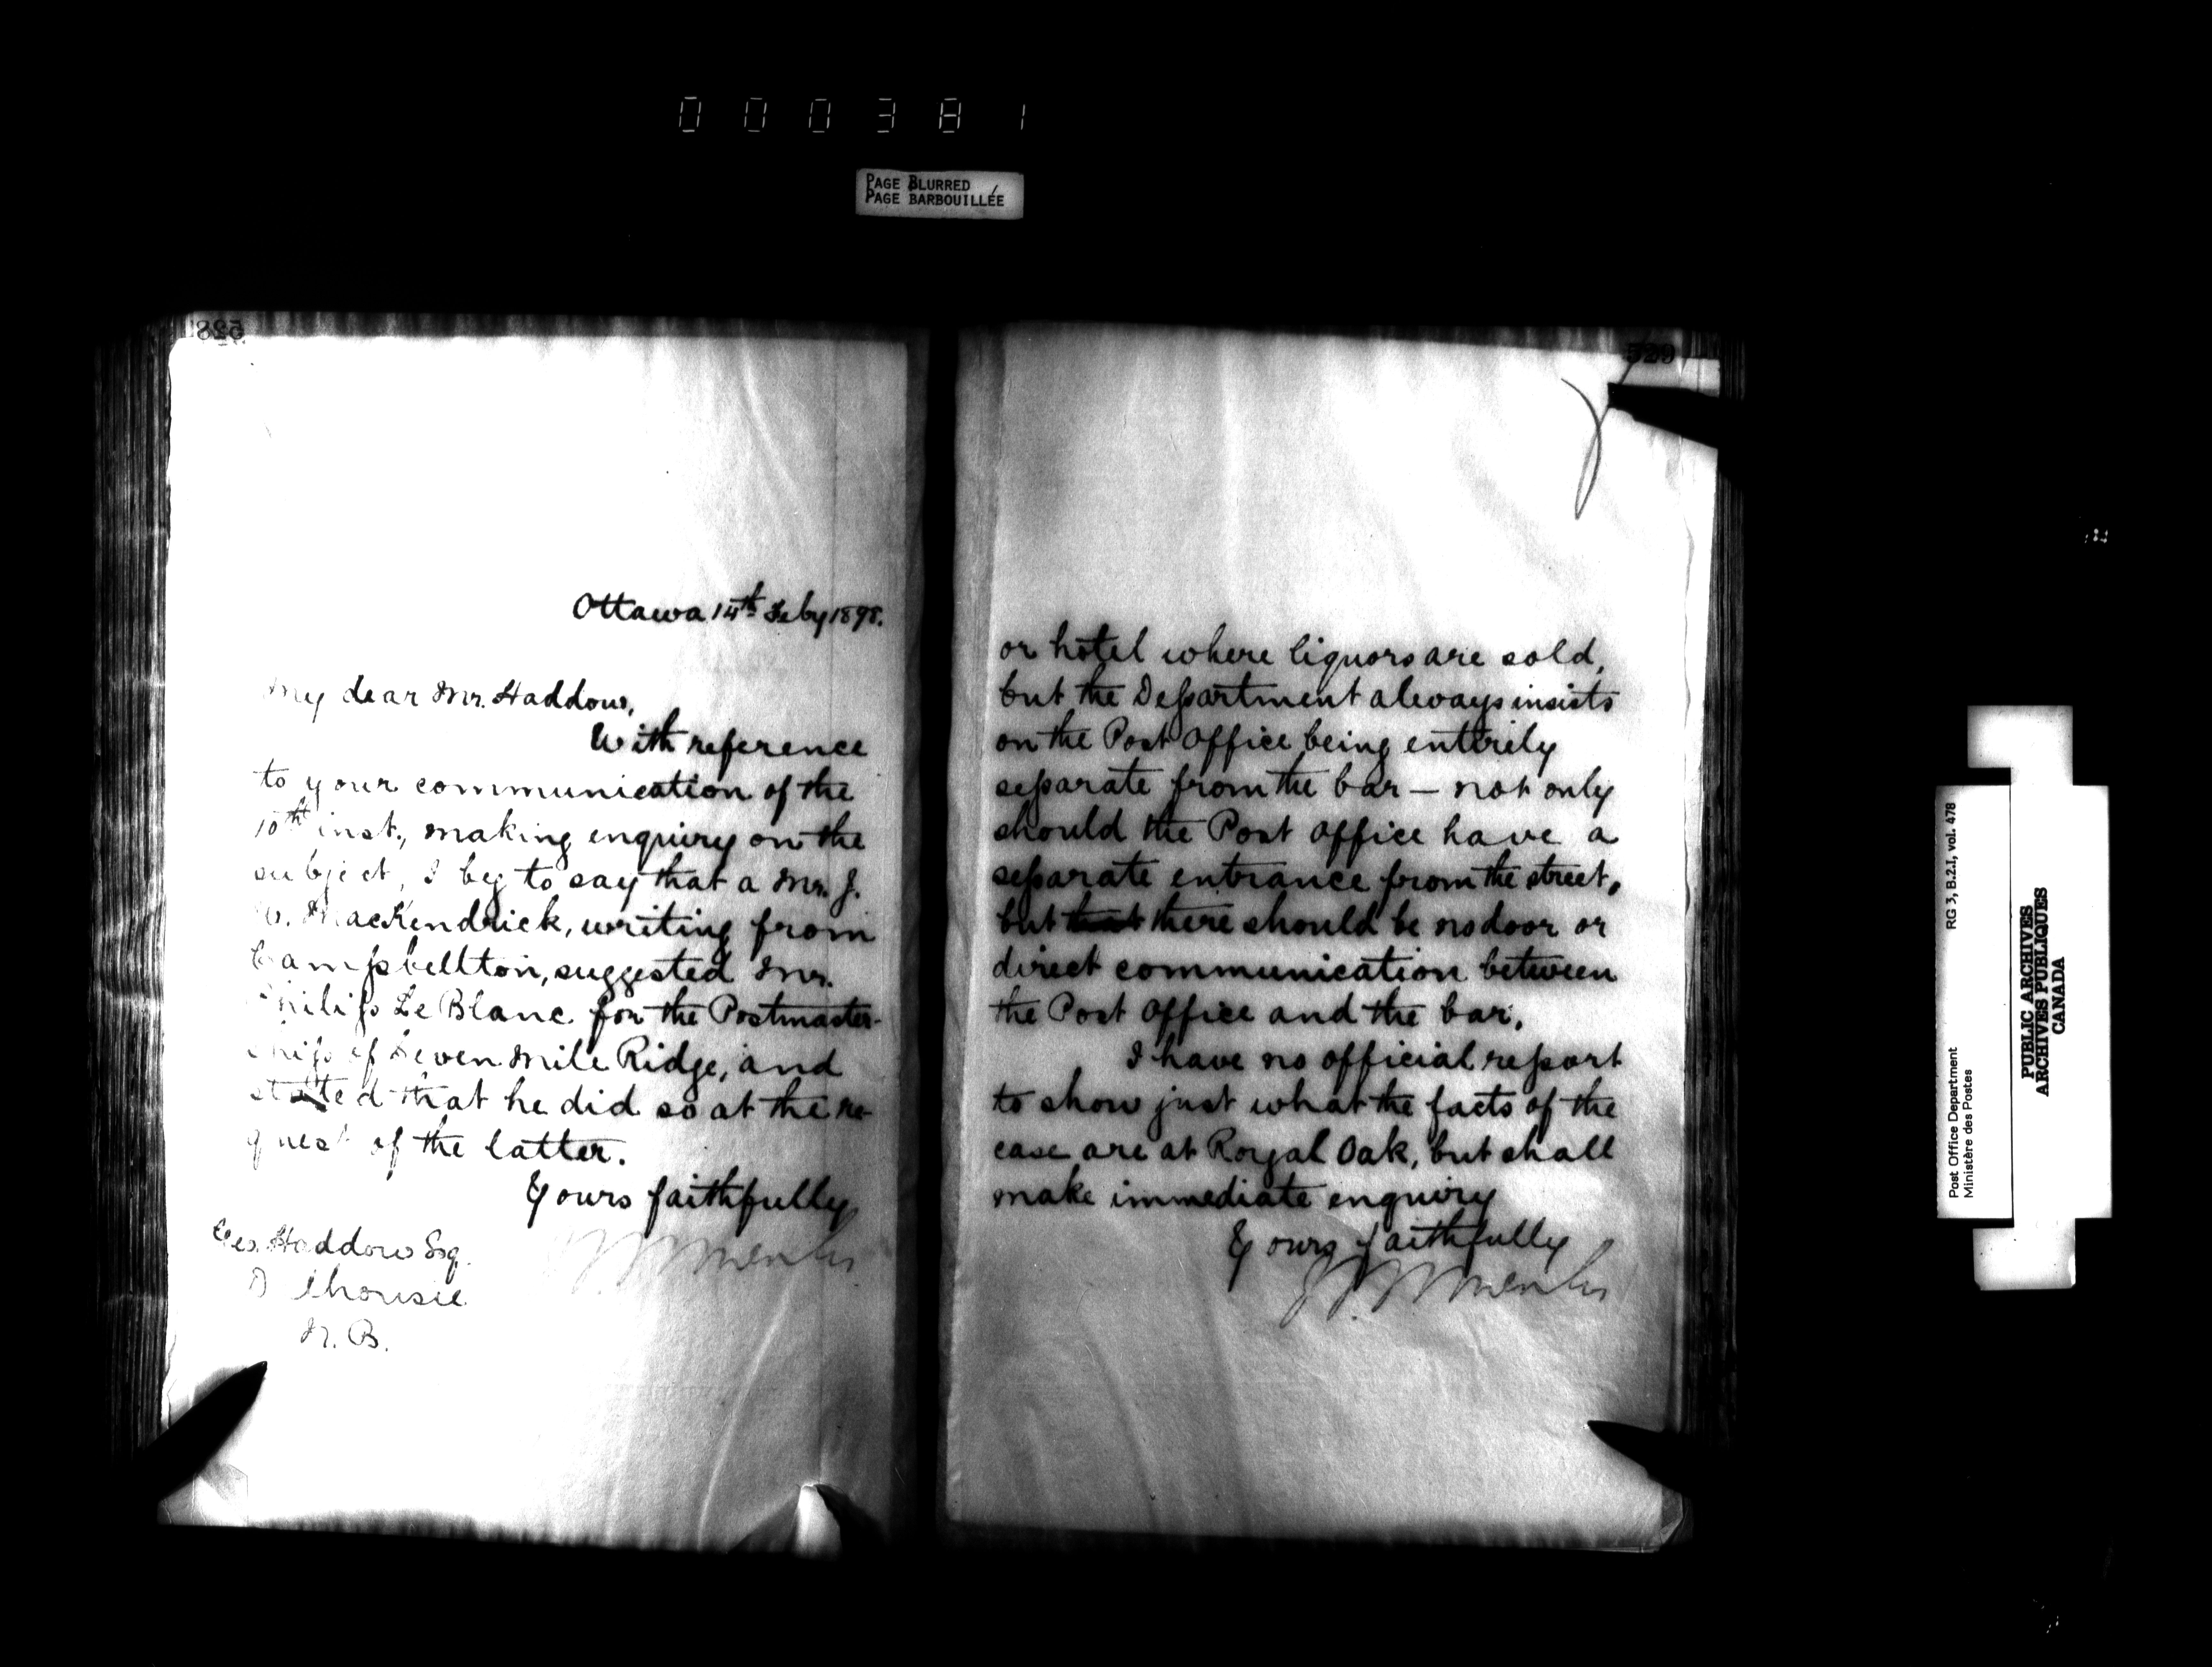 000381
PAGE BLURRED
PAGE BARBOUILLÉE
528
Ottawa 14th Feby 1898.
My dear Mr. Haddow,
With reference
to your communication of the
10th inst., making enquiry on the
subject, I beg to say that a Mr. J.
W. MacKendrick, writing from
Campbellton, suggested Mr.
Philip Le Blanc for the Postmaster-
ship of Seven Mile Ridge, and
stated that he did so at the re-
quest of the latter.
Yours faithfully
Geo. Haddow Esq.
Dalhousie
N.B.
529
or hotel where liquors are sold,
but the Department always insists
on the Post Office being entirely
separate from the bar — not only
should the Post Office have a
separate entrance from the street,
but that there should be no door or
direct communication between
the Post Office and the bar.
I have no official report
to show just what the facts of the
case are at Royal Oak, but shall
make immediate enquiry
Yours faithfully
Post Office Department
Ministère des Postes
RG 3, B.2.I, vol. 478
PUBLIC ARCHIVES
ARCHIVES PUBLIQUES
CANADA